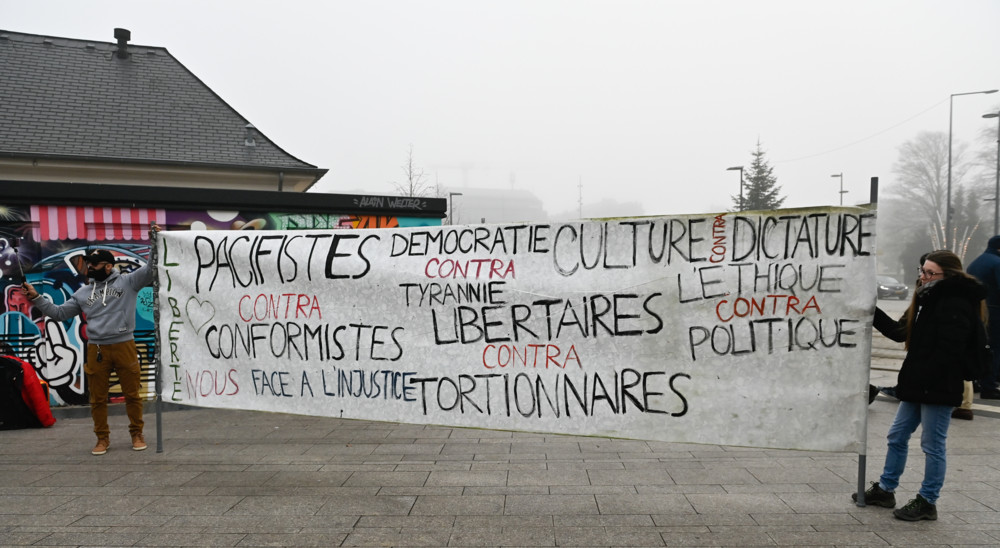 ALAIN WELTER
LIBERTÉ
PACIFISTES
CONTRA
CONFORMISTES
NOUS FACE A L'INJUSTICE
DEMOCRATIE
CONTRA
TYRANNIE
LIBERTAIRES
CONTRA
TORTIONNAIRES
CULTURE CONTRA DICTATURE
L'ÉTHIQUE
CONTRA
POLITIQUE